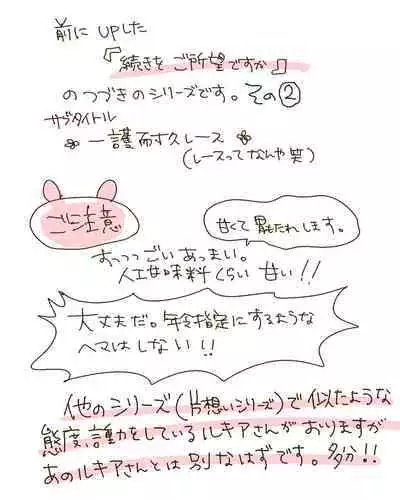 前に UPした
『続きを ご所望ですか』
のつづきのシリーズです。その②
サブタイトル
一護耐久レース
(レースってなんや笑)
ご注意
甘くて胃もたれします。
すっっっごいあっまい。
人工甘味料くらい 甘い!!
大丈夫だ。年令指定にするような
ヘマはしない!!
他のシリーズ(片想いシリーズ)で似たような
態度、言動をしているルキアさんがおりますが
あのルキアさんとは 別なはずです。多分!!